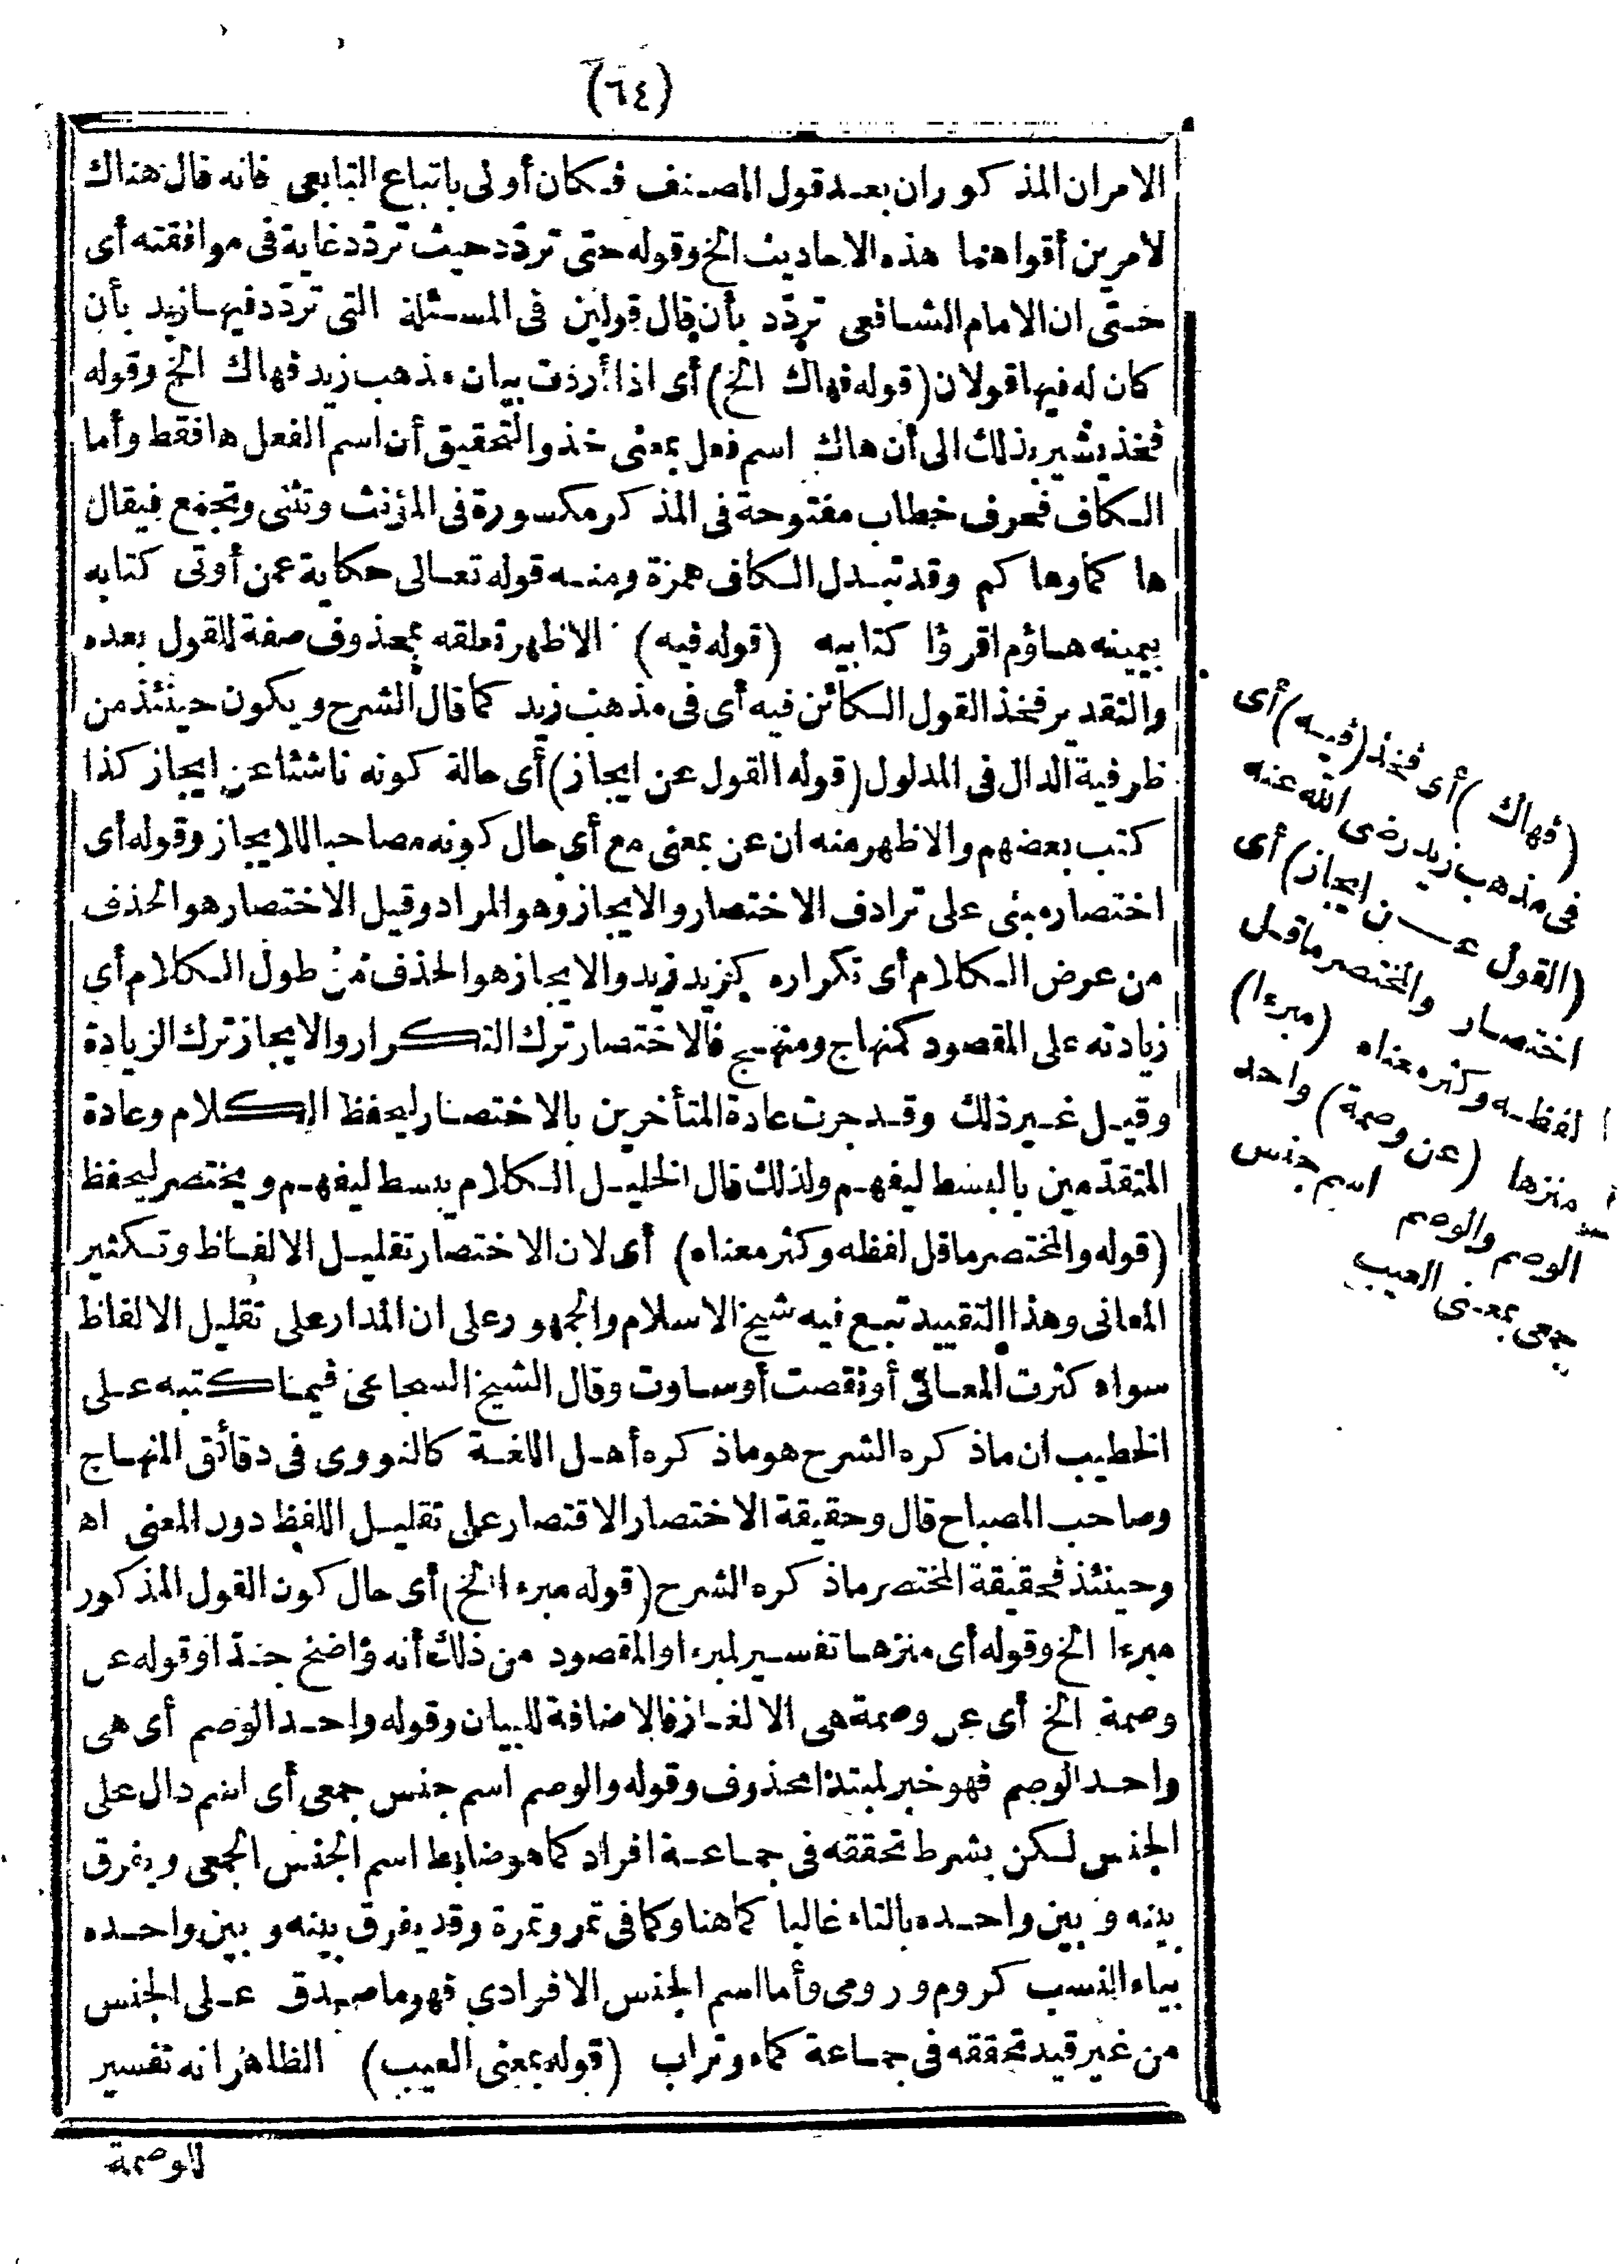 (٦٤)
الامران المذكوران بعد قول المصنف فكان أولى باتباع التابعى فانه قال هناك
لأمرين أقواهما هذه الاحاديث الخ وقوله حتى تردّد حيث تردّد غاية فى موافقته أى
حتى ان الامام الشافعى تردّد بأن قال قولين فى المسئلة التى تردّد فيها زيد بأن
كان له فيها قولان (قوله فهاك الخ) أى اذا أردت بيان مذهب زيد فهاك الخ وقوله
فخذ يشير بذلك الى أن هاك اسم فعل بمعنى خذ والتحقيق أن اسم الفعل ها فقط وأما
الكاف فحرف خطاب مفتوحة فى المذكر مكسورة فى المؤنث وتثنى وتجمع فيقال
هاكما وهاكم وقد تبدل الكاف همزة ومنه قوله تعالى حكاية عمن أوتى كتابه
بيمينه هاؤم اقرؤا كتابيه (قوله فيه) الاظهر تعلقه بمحذوف صفة للقول بعده
والتقدير فخذ القول الكائن فيه أى فى مذهب زيد كما قال الشرح ويكون حينئذ من
ظرفية الدال فى المدلول (قوله القول عن ايجاز) أى حالة كونه ناشئا عن ايجاز كذا
كتب بعضهم والاظهر منه ان عن بمعنى مع أى حال كونه مصاحبا للايجاز وقوله أى
اختصار مبنى على ترادف الاختصار والايجاز وهو المراد وقيل الاختصار هو الحذف
من عرض الكلام أى تكراره كزيد زيد والايجاز هو الحذف من طول الكلام أى
زيادته على المقصود كمنهاج ومنهج فالاختصار ترك التكرار والايجاز ترك الزيادة
وقيل غير ذلك وقد جرت عادة المتأخرين بالاختصار ليحفظ الكلام وعادة
المتقدّمين بالبسط ليفهم ولذلك قال الخليل الكلام يبسط ليفهم ويختصر ليحفظ
(قوله والمختصر ما قل لفظه وكثر معناه) أى لان الاختصار تقليل الالفاظ وتكثير
المعانى وهذا التقييد تبع فيه شيخ الاسلام والجمهور على ان المدار على تقليل الالفاظ
سواء كثرت المعانى أو نقصت أو ساوت وقال الشيخ السجاعى فيما كتبه على
الخطيب ان ما ذكره الشرح هو ما ذكره أهل اللغة كالنووى فى دقائق المنهاج
وصاحب المصباح قال وحقيقة الاختصار الاقتصار على تقليل اللفظ دون المعنى اه
وحينئذ فحقيقة المختصر ما ذكره الشرح (قوله مبرء الخ) أى حال كون القول المذكور
مبرءا الخ وقوله أى منزها تفسير لمبرء والمقصود من ذلك أنه واضح جدّا وقوله عن
وصمة الخ أى عن وصمة هى الالغاز فالاضافة للبيان وقوله واحد الوصم أى هى
واحد الوصم فهو خبر لمبتدا محذوف وقوله والوصم اسم جنس جمعى أى اسم دال على
الجنس لكن بشرط تحققه فى جماعة افراد كما هو ضابط اسم الجنس الجمعى ويفرق
بينه وبين واحده بالتاء غالبا كما هنا وكما فى تمر وتمرة وقد يفرق بينه وبين واحده
بياء النسب كروم ورومى وأما اسم الجنس الافرادى فهو ما صدق على الجنس
من غير قيد تحققه فى جماعة كماء وتراب (قوله بمعنى العيب) الظاهر انه تفسير
للوصمة
(فهاك) أى فخذ (فيه) أى
فى مذهب زيد رضى الله عنه
(القول عن ايجاز) أى
اختصار والمختصر ما قل
لفظه وكثر معناه (مبرءا)
منزها (عن وصمة) واحد
الوصم والوصم اسم جنس
جمعى بمعنى العيب